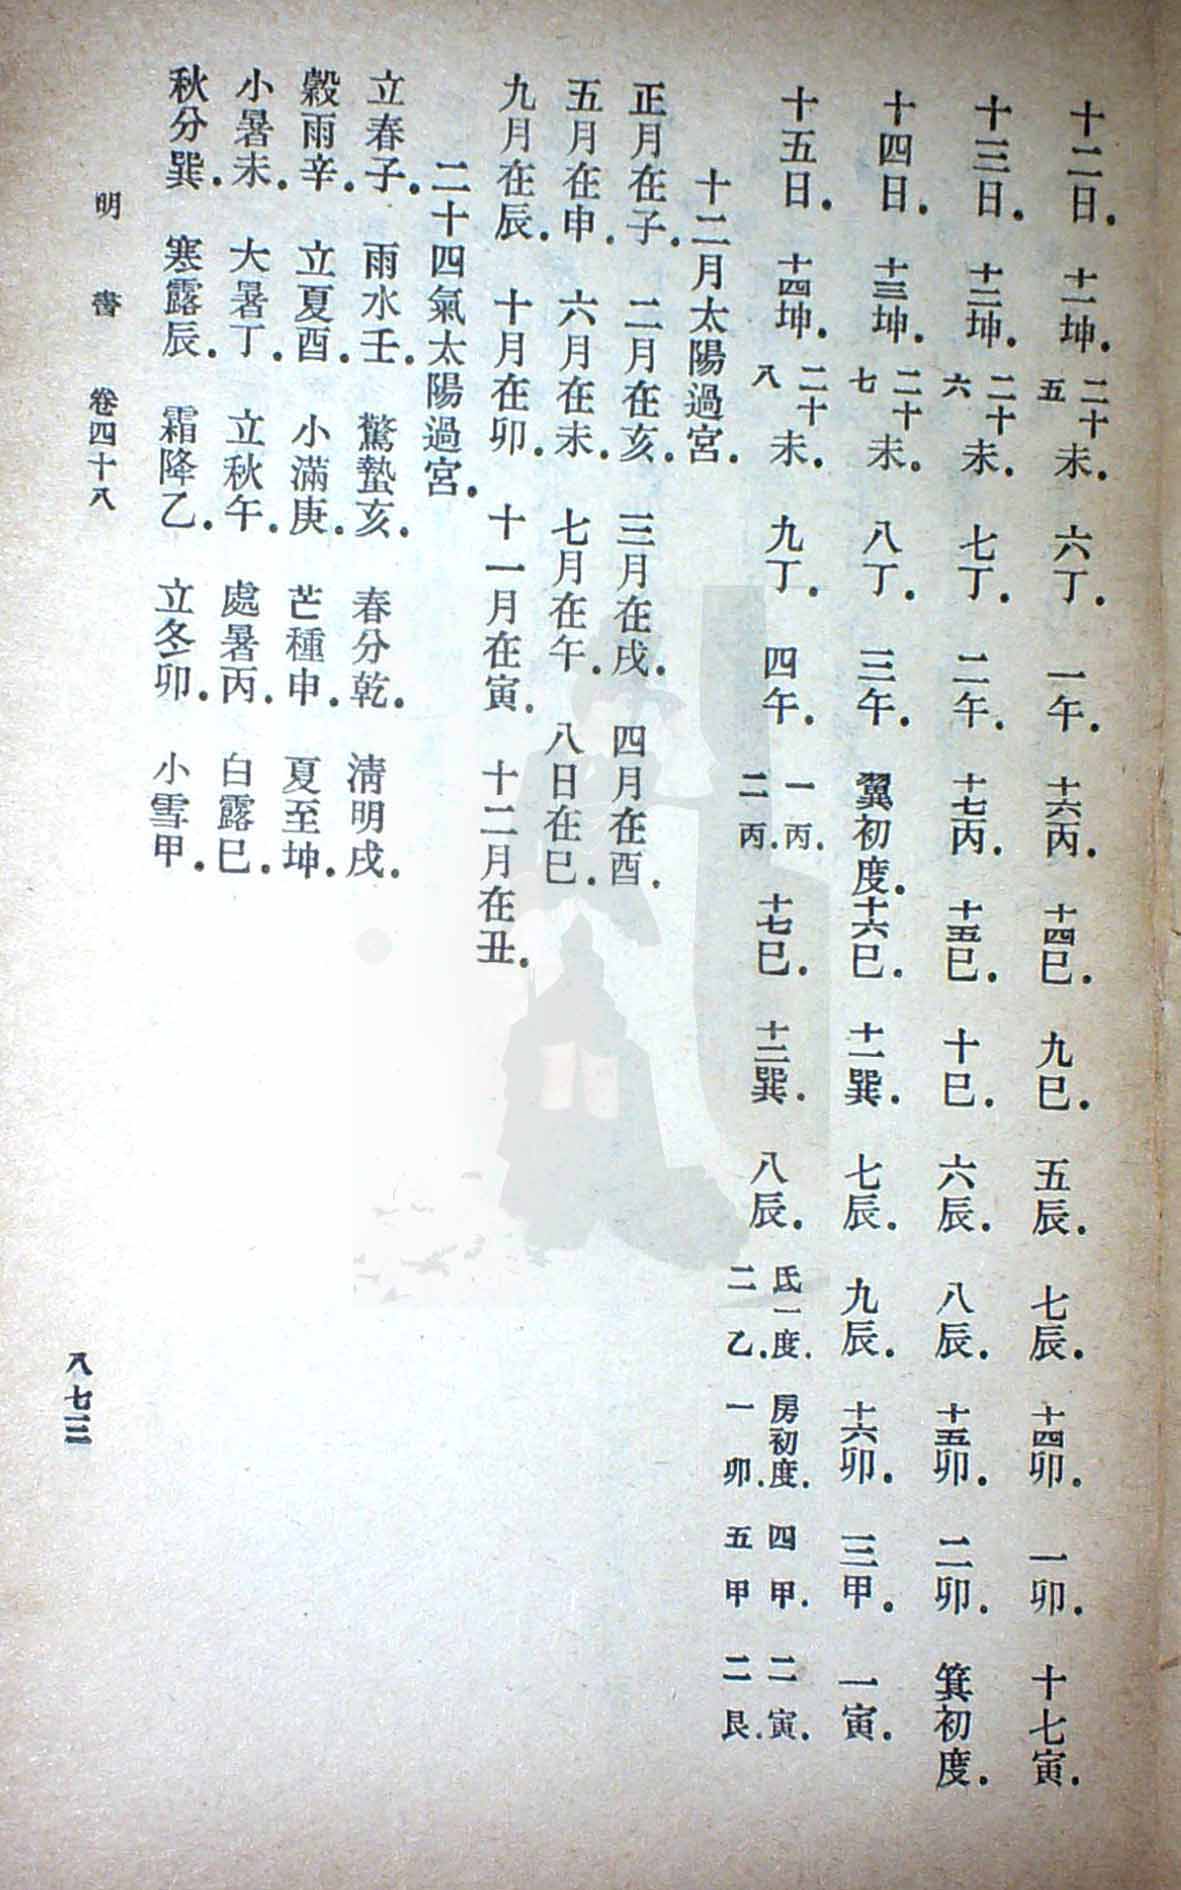 十二日．　十一坤．　二十五未．　六丁．　一午．　十六丙．　十四巳．　九巳．　五辰．　七辰．　十四卯．　一卯．　十七寅．
十三日．　十二坤．　二十六未．　七丁．　二午．　十七丙．　十五巳．　十巳．　六辰．　八辰．　十五卯．　二卯．　箕初度．
十四日．　十三坤．　二十七未．　八丁．　三午．　翼初度．　十六巳．　十一巽．　七辰．　九辰．　十六卯．　三甲．　一寅．
十五日．　十四坤．　二十八未．　九丁．　四午．　一丙．二丙．　十七巳．　十二巽．　八辰．　氐一度．二乙．　房初度．一卯．　四甲．五甲　二寅．二艮．
十二月太陽過宮．
正月在子．　二月在亥．　三月在戌．　四月在酉．
五月在申．　六月在未．　七月在午．　八日在巳．
九月在辰．　十月在卯．　十一月在寅．　十二月在丑．
二十四氣太陽過宮．
立春子．　雨水壬．　驚蟄亥．　春分乾．　清明戌．
穀雨辛．　立夏酉．　小滿庚．　芒種申．　夏至坤．
小暑未．　大暑丁．　立秋午．　處暑丙．　白露巳．
秋分巽．　寒露辰．　霜降乙．　立冬卯．　小雪甲．
明書　卷四十八
八七三